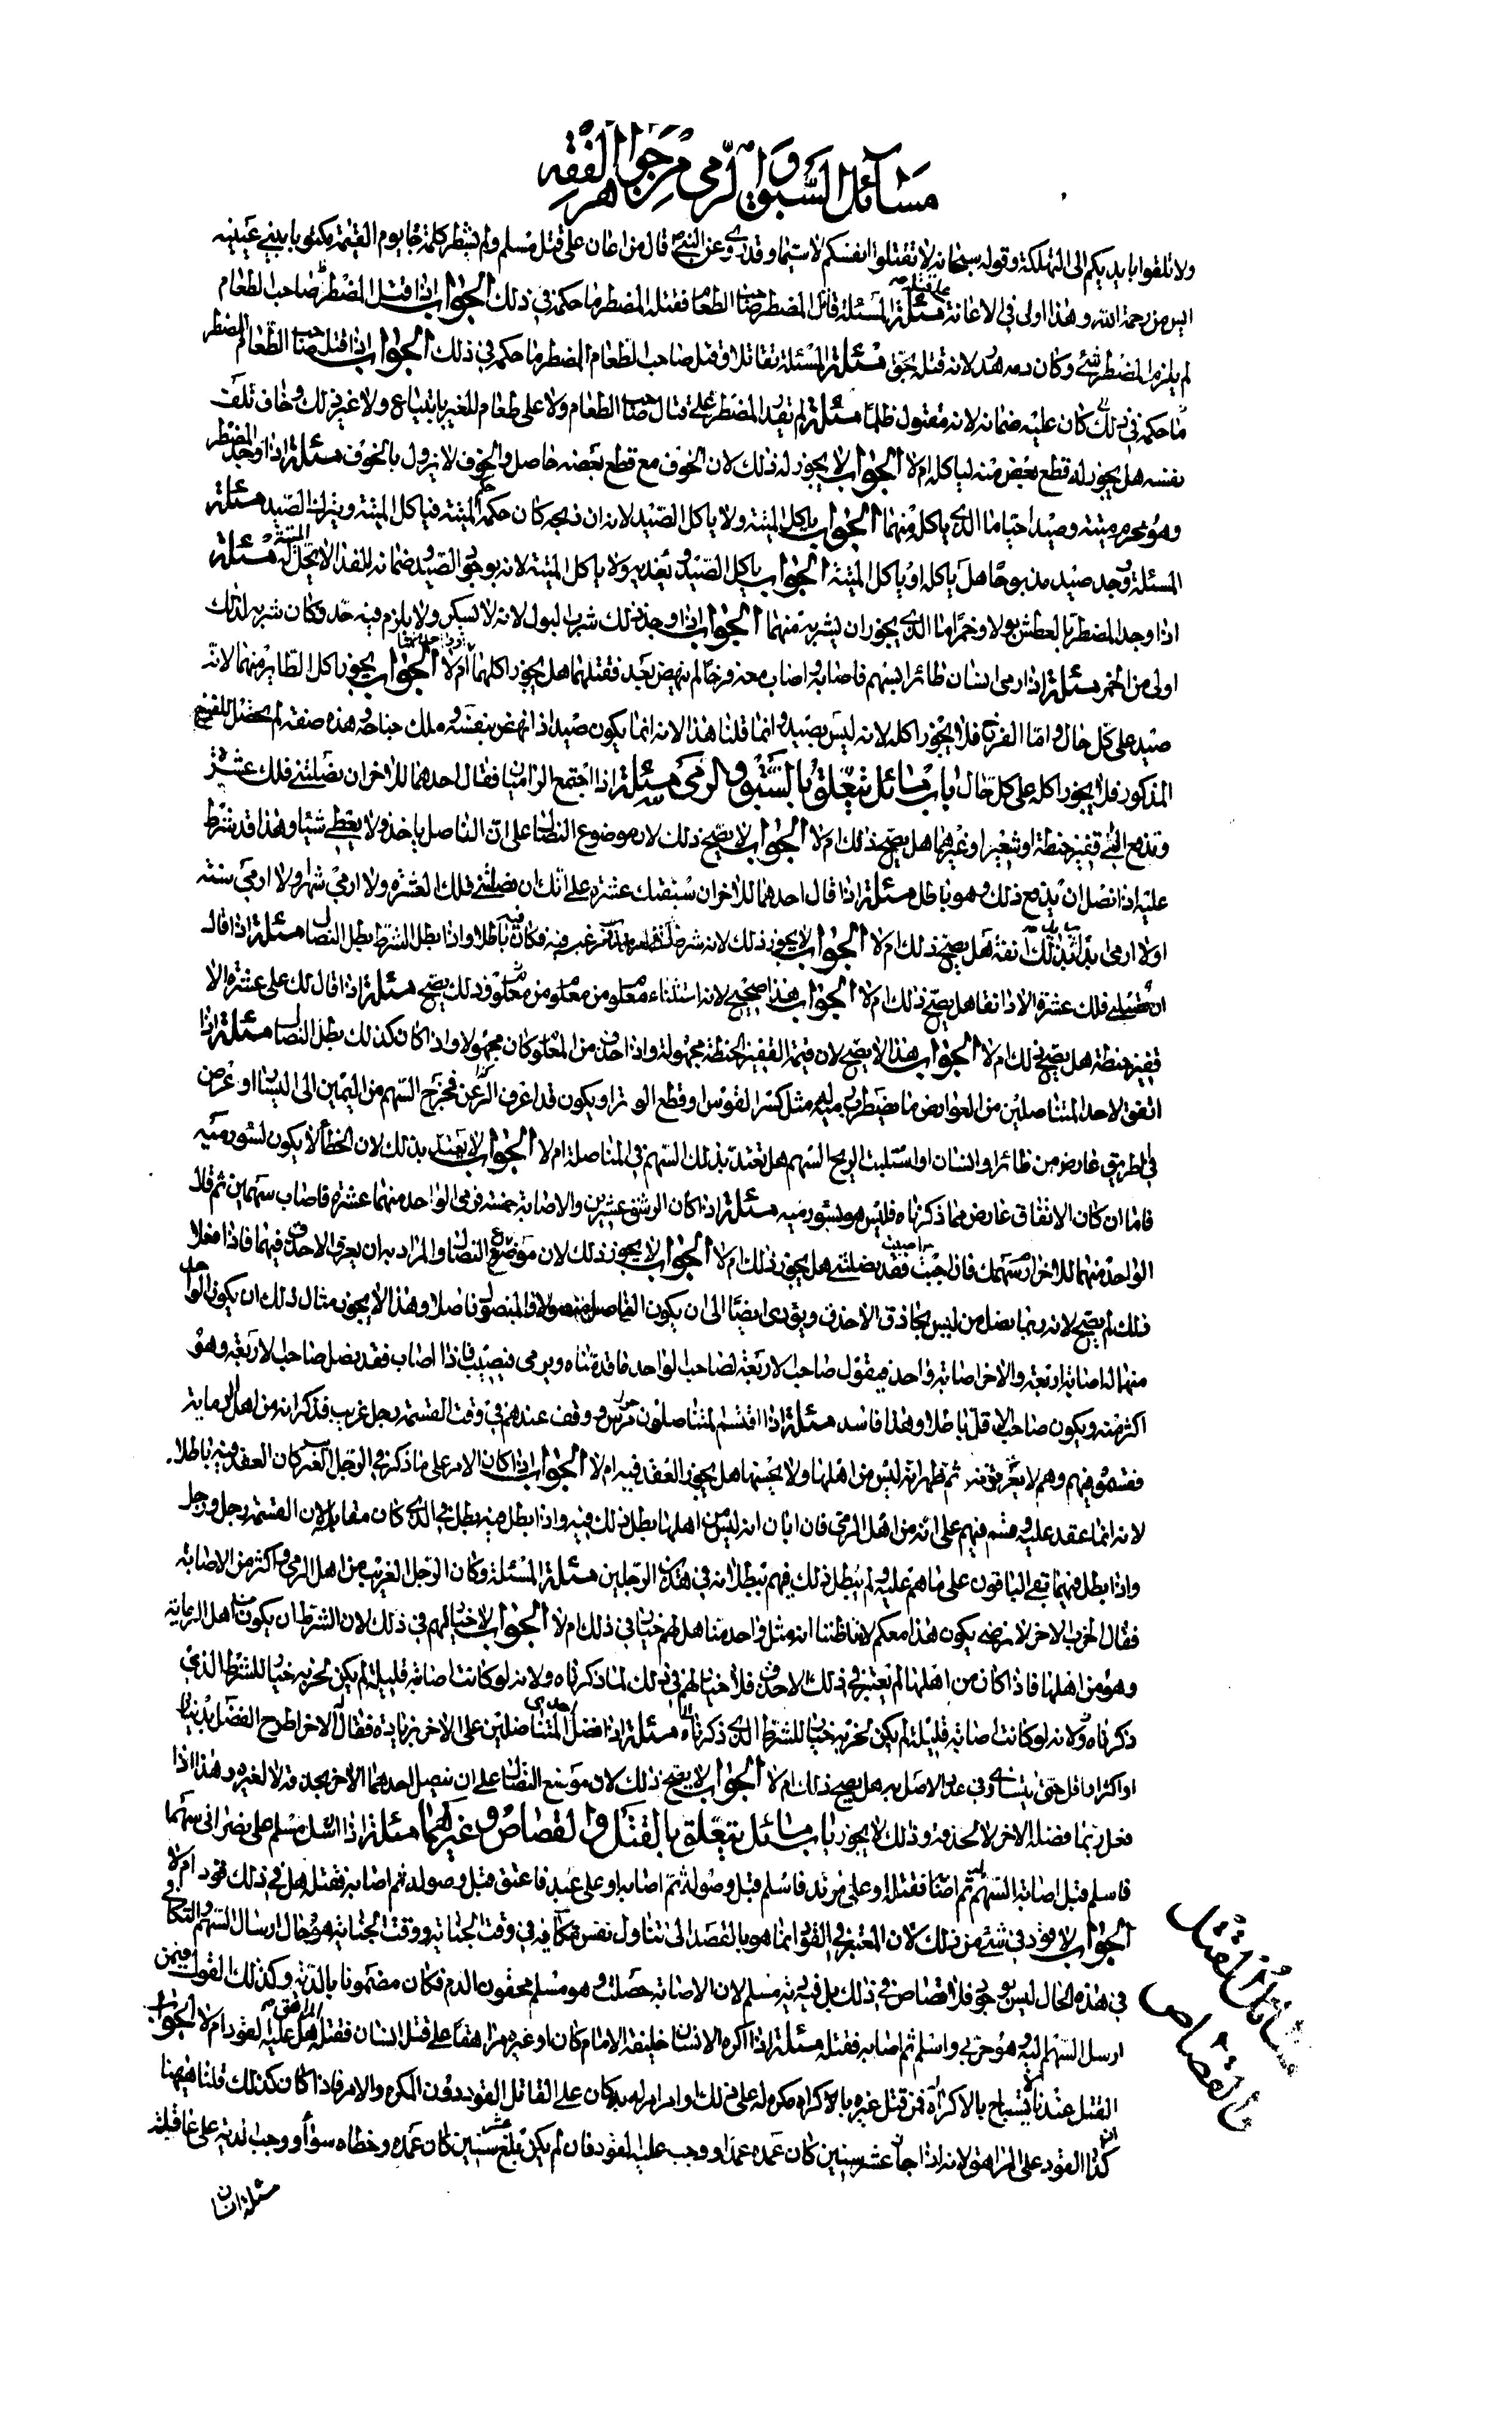 مسائل السبق والرمى من جواهر الفقه
ولا تلقوا بايديكم الى التهلكة وقوله سبحانه لا تقتلوا انفسكم لا سيما وقد روى عن النبى ص قال من اعان على قتل مسلم ولو بشطر كلمة جا يوم القيمة مكتوبا بين عينيه
ايس من رحمة الله وهذا اولى فى الاعانة على قتله مسئلة المسئلة قاتل المضطر صاحب الطعام فقتله المضطر ما حكمه فى ذلك الجواب اذا قتل المضطر صاحب الطعام
لم يلزم المضطر شئ وكان دمه هدر لانه قتله بحق مسئلة المسئلة تقاتلا وقتل صاحب الطعام المضطر ما حكمه فى ذلك الجواب اذا قتل صاحب الطعام المضطر
ما حكمه فى ذلك كان عليه ضمانه لانه مقتول ظلما مسئلة لم يقدر المضطر على قتال صاحب الطعام ولا على طعام للغير بابتياع ولا غير ذلك وخاف تلف
نفسه هل يجوز له قطع بعض منه لياكله ام لا الجواب لا يجوز له ذلك لان الخوف مع قطع بعضه حاصل والخوف لا يزول بالخوف مسئلة اذا وجد المضطر
وهو محرم ميتة وصيدا حيا ما الذى ياكل منهما الجواب ياكل الميتة ولا ياكل الصيد لانه ان ذبحه كان حكمه حكم الميتة فياكل الميتة ويترك الصيد مسئلة
المسئلة وجد صيد مذبوحا هل ياكله او ياكل الميتة الجواب ياكل الصيد ويفديه ولا ياكل الميتة لانه بوجود الصيد وضمانه للفدا لا يحل له الميتة مسئلة
اذا وجد المضطر بالعطش بولا وخمرا ما الذى يجوز ان يشربه منهما الجواب اذا وجد ذلك شرب البول لانه لا يسكر ولا يلزم فيه حد فكان شربه لذلك
اولى من الخمر مسئلة اذا رمى انسان طائرا بسهم فاصابه واصاب معه فرخا لم ينهض بعد فقتلهما هل يجوز اكلهما او واحد منهما ام لا الجواب يجوز اكل الطاير منهما لانه
صيد على كل حال واما الفرخ فلا يجوز اكله لانه ليس بصيد وانما قلنا هذا لانه انما يكون صيدا اذا نهض بنفسه وملك جناحه وهذه صفة لم تحصل للفرخ
المذكور فلا يجوز اكله على كل حال باب مسائل تتعلق بالسبق والرمى مسئلة اذا اجتمع الراميان فقال احدهما للاخر ان نضلتنى فلك عشرة
وتدفع الى قفيز حنطة او شعير او غيرهما هل يصح ذلك ام لا الجواب لا يصح ذلك لان موضوع النضال على ان الناضل ياخذ ولا يعطى شيئا وهذا قد شرط
عليه اذا نضل ان يدفع ذلك وهو باطل مسئلة اذا قال احدهما للاخر ان سبقتك عشرة على انك ان نضلتنى فلك العشرة ولا ارمى شهرا ولا ارمى سنة
اولا ارمى بدا هل يصح ذلك ام لا الجواب لا يجوز ذلك لانه شرط مرغب فيه فكان باطلا واذا بطل الشرط بطل النضال مسئلة اذا قال
ان نضلتنى فلك عشرة الا دانقا هل يصح ذلك ام لا الجواب هذا صحيح لانه استثناء معلوم من معلوم وذلك يصح مسئلة اذا قال لك على عشرة الا
قفيز حنطة هل يصح ذلك ام لا الجواب هذا لا يصح لان قيمة القفيز الحنطة مجهولة واذا حذف من المعلوم كان مجهولا واذا كان كذلك بطل النضال مسئلة اذا
اتفق لاحد المتناضلين من العوارض ما يضطرب رميه له مثل كسر القوس او قطع الوتر او يكون قد اغرق النزع فخرج السهم من اليمين الى اليسار او عرض
فى الطريق عارض من طائر او انسان او استلبت الريح السهم هل يعتد بذلك السهم فى المناضلة ام لا الجواب لا يعتد بذلك لان الخطأ لا يكون لسوء رميه
فاما ان كان الاتفاق عارض مما ذكرناه فليس هو بسوء رميه مسئلة اذا كان الرشق عشرين والاصابة خمسة فرمى الواحد منهما عشرة فاصاب سهمين ثم قال
الواحد منهما للاخر ارم سهمك فان اصبت فقد نضلتنى هل يجوز ذلك ام لا الجواب لا يجوز ذلك لان موضوع النضال والمراد به ان يعرف الاحذق فيهما فاذا فعلا
ذلك لم يصح لانه ربما نضل من ليس بحاذق الاحذق ويؤدى ايضا الى ان يكون الفاضل منضولا والمنضول ناضلا وهذا لا يجوز مثال ذلك ان يكون الواحد
منهما له اصابة اربعة والاخر اصابة واحدة فيقول صاحب الاربعة لصاحب الواحدة ويرمى فيصيب فاذا اصاب فقد نضل صاحب الاربعة وهو
اكثر منه ويكون صاحب الاقل باطلا وهذا فاسد مسئلة اذا اقتسم المتناضلون حزبين ووقف عندهم فى وقت القسمة رجل غريب فذكر انه من اهل الرماية
فقسموه فيهم وهم لا يعرفونه ثم ظهر انه ليس من اهلها ولا يحسنها هل يجوز العقد فيه ام لا الجواب اذا كان الامر على ما ذكر فى الرجل الغريب كان العقد فيه باطلا
لانه انما عقد عليه وقسم فيهم على انه من اهل الرمى فان ابان انه ليس من اهلها بطل ذلك فيه واذا بطل فيه بطل فى الذى كان مقابله لان القسمة رجل ورجل
واذا بطل فيهما بقى الباقون على ما هم عليه ولم يبطل ذلك فيهم ببطلانه فى هذين الرجلين مسئلة المسئلة وكان الرجل الغريب من اهل الرمى واكثر من الاصابة
فقال الحزب الاخر لا نرضى يكون هذا معكم لانا ظننا انه مثل واحد منا هل لهم خيار فى ذلك ام لا الجواب لا خيار لهم فى ذلك لان الشرط ان يكون من اهل الرماية
وهو من اهلها فاذا كان من اهلها لم يعتبر فى ذلك الاحذق فلا خيار لهم فى ذلك لما ذكرناه ولانه لو كانت اصابته قليلة لم يكن لحزبه خيار للشرط الذى
ذكرناه ولانه لو كانت اصابته قليلة لم يكن لحزبه خيار للشرط الذى ذكرناه مسئلة اذا فضل احدى المتناضلين على الاخر بزيادة فقال له الاخر اطرح الفضل بدينار
او اكثر او اقل حتى يتساوى فى عدد الاصابة هل يصح ذلك ام لا الجواب لا يصح ذلك لان موضع النضال على ان ينضل احدهما الاخر بحذقه لا لغيره وهذا اذا
فعل ربما فضله الاخر لا لحذقه وذلك لا يجوز باب مسائل تتعلق بالقتل والقصاص وغيرهما مسئلة اذا ارسل مسلم على نصرانى سهما
فاسلم قبل اصابة السهم ثم اصابه فقتله او على مرتد فاسلم قبل وصوله ثم اصابه او على عبد فاعتق قبل وصوله ثم اصابه فقتله هل فى ذلك قود ام لا
الجواب لا قود فى شئ من ذلك لان المعتبر فى القود انما هو بالقصد الى تناول نفس مكافية فى وقت الجناية ووقت الجناية هو حال ارسال السهم والتكافؤ
فى هذه الحال ليس بموجود فلا قصاص فى ذلك بل فيه دية مسلم لان الاصابة حصلت وهو مسلم محقون الدم فكان مضمونا بالدية وكذلك القول فيمن
ارسل السهم اليه وهو حربى واسلم ثم اصابه فقتله مسئلة اذا اكره الانسان خليفة الامام كان او غيره مراهقا على قتل انسان فقتله هل على المراهق القود ام لا الجواب
القتل عندنا لا يستباح بالاكراه فمن قتل غيره بالاكراه مكره له على ذلك وامر امر له به كان على القاتل القود دون المكره والامر فاذا كان كذلك قلنا ههنا
كذا القود على المراهق لانه اذا جاز عشر سنين كان عمده عمدا ووجب عليه القود فان لم يكن بلغ عشر سنين كان عمده وخطاه سوأ ووجب الدية على عاقلته
مسئلة اذا كان
مسائل القتل
والقصاص